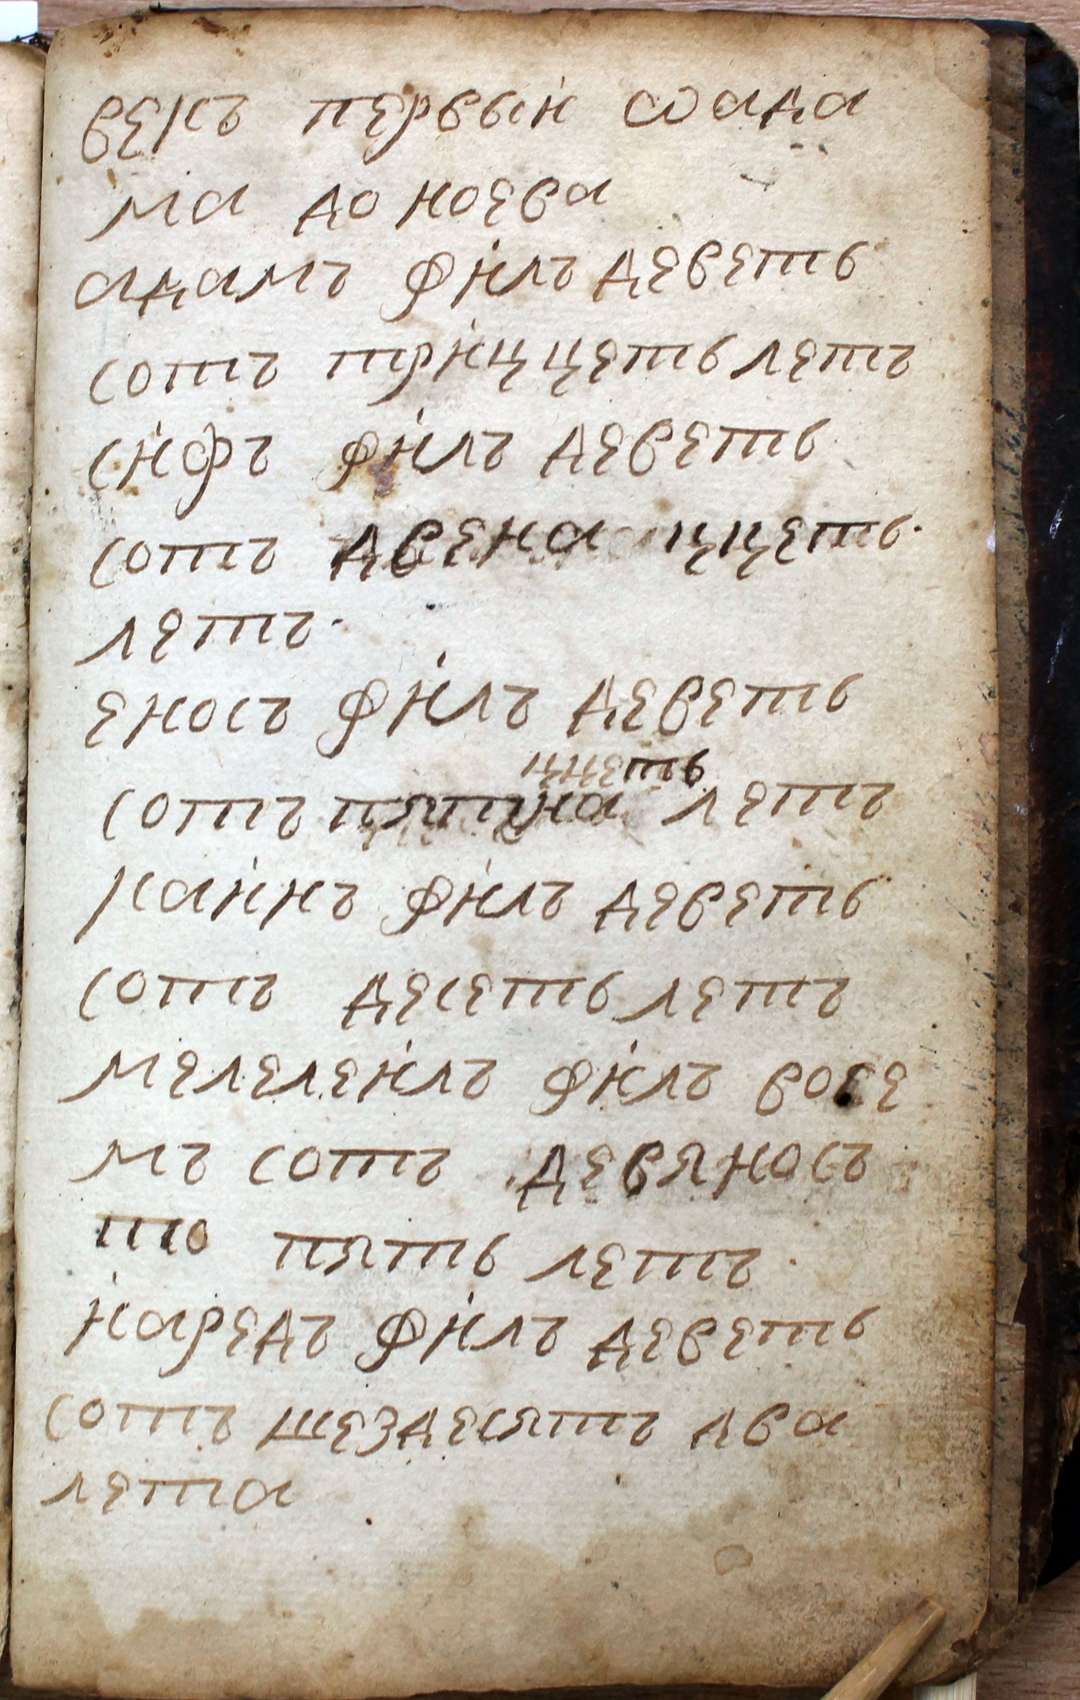 векъ первый ѿ ада
ма до ноева
адамъ жилъ деветь
сотъ трйццеть летъ
сифъ жилъ деветь
сотъ двена ццеть
летъ
еносъ жилъ деветь
ццеть
сотъ пятйна летъ
каинъ жилъ деветь
сотъ десеть летъ
мелелеилъ жилъ восе
мъ сотъ девяносъ
то пять летъ
иаредъ жилъ деветь
сотъ шездесятъ два
лета